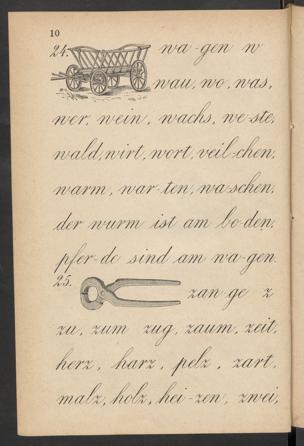 10
24. wa-gen w
wau, wo, was,
wer, wein, wachs, we-ste,
wald, wirt, wort, veil-chen,
warm, war-ten, wa-schen,
der wurm ist am bo-den,
pfer-de sind am wa-gen.
25. zan-ge z
zu, zum zug, zaum, zeit,
herz, harz, pelz, zart,
malz, holz, hei-zen, zwei,